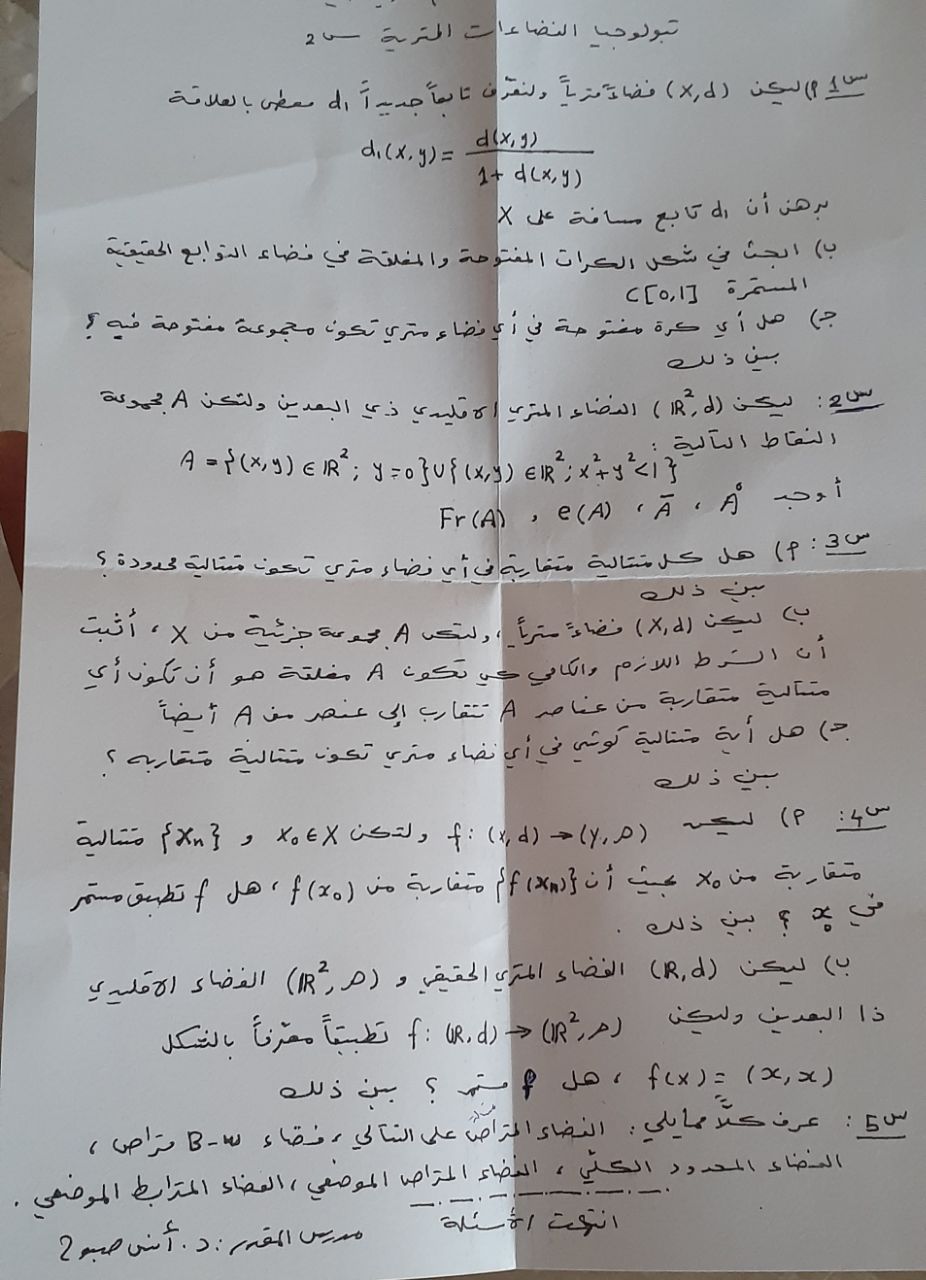 تبولوجيا الفضاءات المترية س2
س1 P) ليكن (X,d) فضاءً مترياً ولنعرّف تابعاً جديداً d₁ معطى بالعلاقة
d₁(x,y) = d(x,y) / 1+ d(x,y)
برهن أن d₁ تابع مسافة على X
ب) ابحث في شكل الكرات المفتوحة والمغلقة في فضاء التوابع الحقيقية
المستمرة C[0,1]
جـ) هل أي كرة مفتوحة في أي فضاء متري تكون مجموعة مفتوحة فيه ؟
بين ذلك
س2: ليكن (ℝ², d) الفضاء المتري الاقليدي ذي البعدين ولتكن A مجموعة
النقاط التالية :
A = {(x,y) ∈ ℝ² ; y=0} ∪ {(x,y) ∈ ℝ² ; x²+y²<1}
أوجد A° ، Ā ، e(A) ، Fr(A)
س3: P) هل كل متتالية متقاربة في أي فضاء متري تكون متتالية محدودة ؟
بين ذلك
ب) ليكن (X,d) فضاءً مترياً ، ولتكن A مجموعة جزئية من X ، أثبت
أن الشرط اللازم والكافي كي تكون A مغلقة هو أن تكون أي
متتالية متقاربة من عناصر A تتقارب إلى عنصر من A أيضاً
جـ) هل أية متتالية كوشي في أي فضاء متري تكون متتالية متقاربه ؟
بين ذلك
س4: P) ليكن f: (x,d) → (y,ρ) ولتكن x₀ ∈ X و {xₙ} متتالية
متقاربة من x₀ بحيث أن {f(xₙ)} متقاربة من f(x₀) ، هل f تطبيق مستمر
في x₀ ؟ بين ذلك .
ب) ليكن (ℝ,d) الفضاء المتري الحقيقي و (ℝ²,ρ) الفضاء الاقليدي
ذا البعدين وليكن f: (ℝ,d) → (ℝ²,ρ) تطبيقاً معرّفاً بالشكل
f(x) = (x,x) ، هل f مستمر ؟ بين ذلك
س5: عرف كلاً ممايلي : الفضاء المتراص على التتالي ، فضاء B-W متراص ،
الفضاء المحدود الكلّي ، الفضاء المتراص الموضعي ، الفضاء المترابط الموضعي .
انتهت الأسئلة
مدرس المقرر : د. أنس